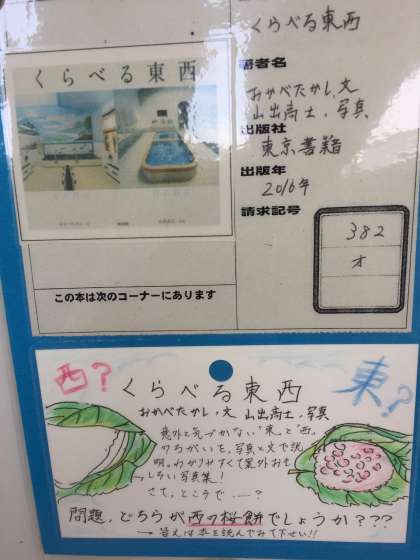 くらべる東西
著者名
おかべたかし、文
山出高士、写真
出版社
東京書籍
出版年
2016年
請求記号
382
オ
くらべる東西
この本は次のコーナーにあります
西?
東?
くらべる東西
おかべたかし・文 山出高士・写真
意外と気づかない"東"と"西"。
のちがいを、写真と文で説
明。わかりやすくて案外おも
しろい写真集!
さて、ところで……?
問題、どちらが西の桜餅でしょうか???
→答えは本を読んでみて下さい!!